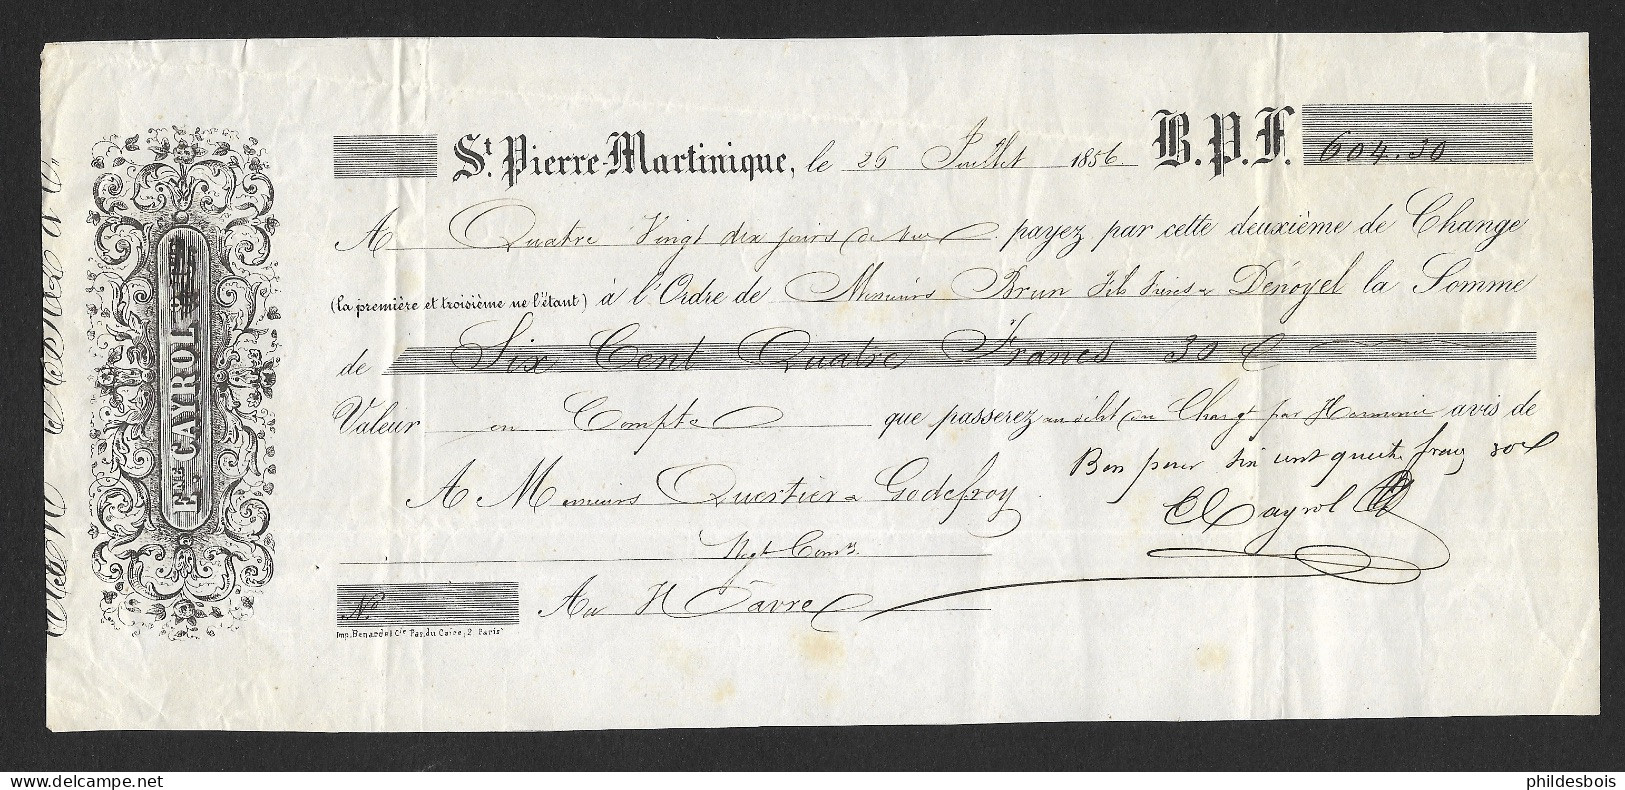 St. Pierre-Martinique, le 26 Juillet 1856. B.P.F. 604.30
A Quatre Vingt dix jours de vue payez par cette deuxième de Change
(la première et troisième ne l'étant) à l'Ordre de Messieurs Brun Fils frères & Dénoyel la Somme
de Six Cent Quatre Francs 30 C
Valeur en Compte que passerez au débit en avis de
Bon pour six cent quatre francs 30 c
A Messieurs Quertier & Godefroy
Cayrol
Negt Comrs.
No. Au Havre
Imp. Benard et Cie Pas. du Caire, 2. Paris
CAYROL
phildesbois